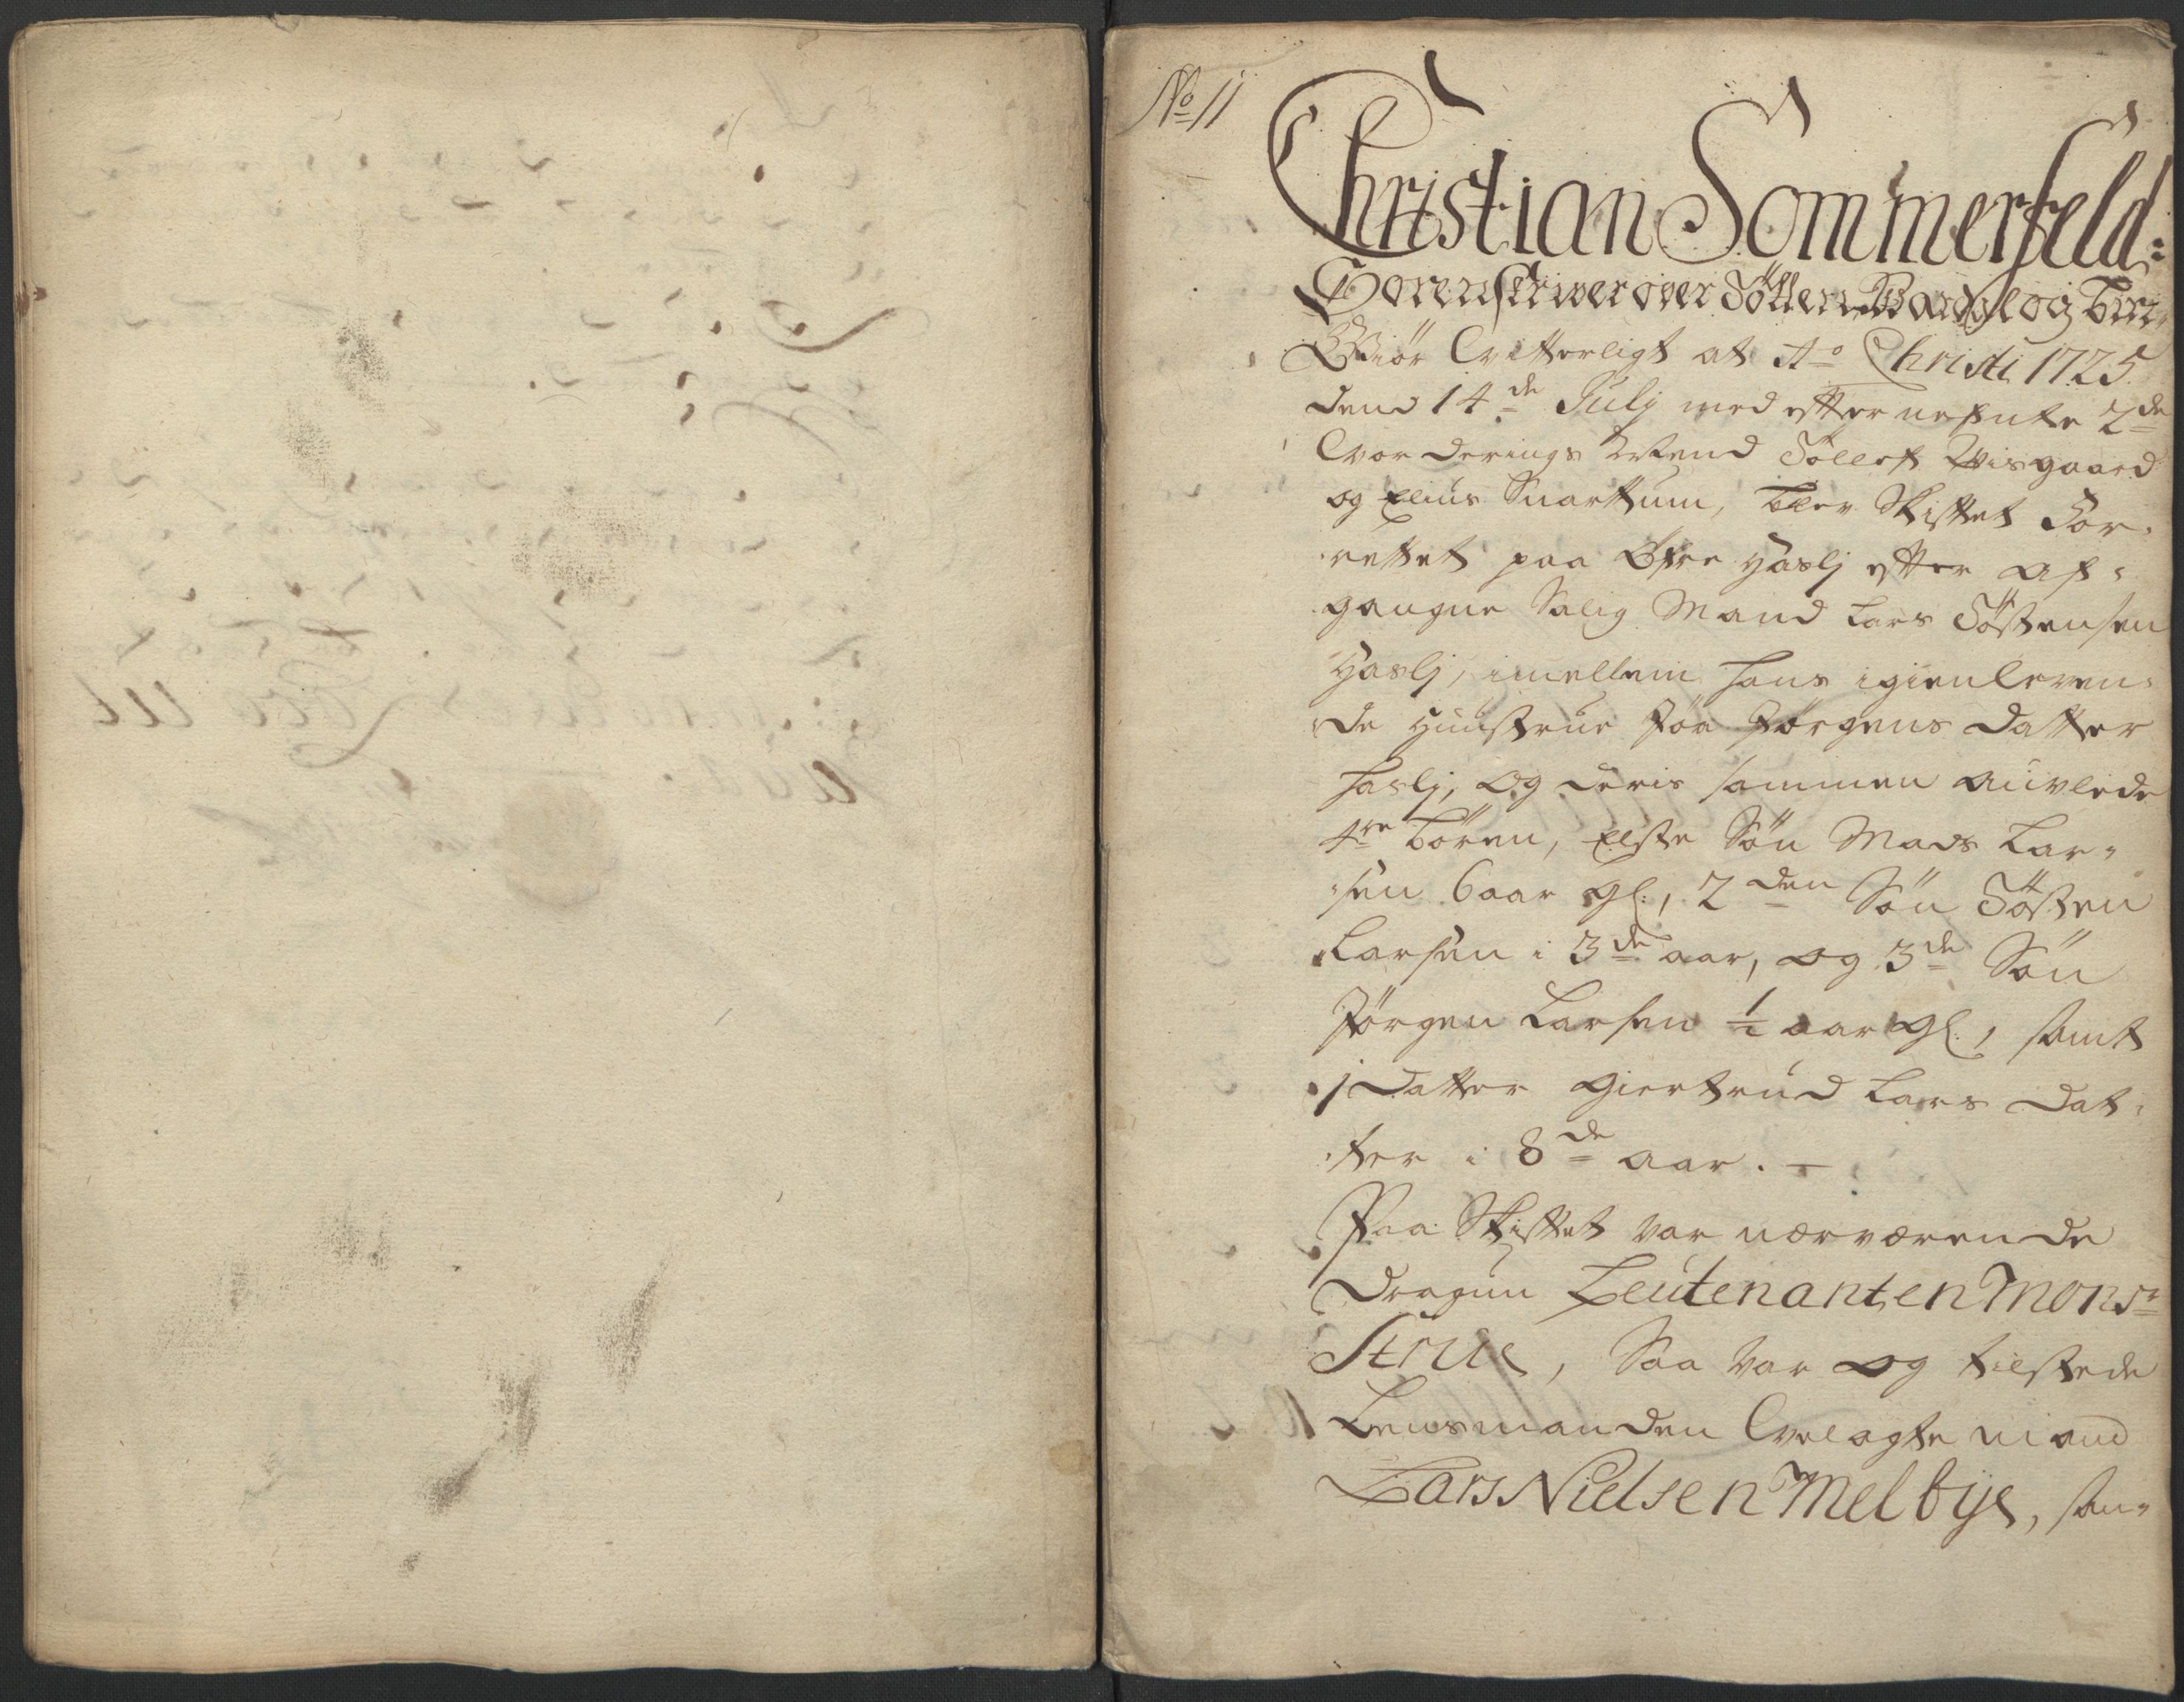 No 11
Christian Sommerfeld
Sorenskriver over Totten, Vardal og Birj
Giör Vitterligt at Ao Christi 1725
dend 14de Julj med efter nefnte 2de
Vorderings Mend Tollef Wisgaard
og Elius Snarttum, blev Skifftet For-
rettet paa Öfre Haslj efter af-
gangne Salig Mand Lars Töstensen
Haslj, imellem hans igienleven-
de Hustrue Joa Jörgens Datter
Haslj, og deris sammen auvlede
4re Börn, Elste Sön Mads Lar-
sen 6 aar gl:, 2den Sön Tösten
Larsen i 3de aar, og 3de Sön
Jörgen Larsen ½ aar gl:, samt
1 Datter Giertrud Lars Dat-
ter i 8de aar.
Paa Skifftet var nærværende
Dragun Leutenanten Monsr
Strue, Saa var og tilstede
Lensmanden Velagte mand
Lars Nielsen Melbye, sam-